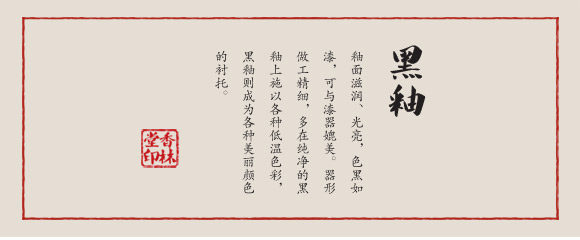 黑釉
釉面滋润、光亮，色黑如
漆，可与漆器媲美。器形
做工精细，多在纯净的黑
釉上施以各种低温色彩，
黑釉则成为各种美丽颜色
的衬托。
香林
堂印